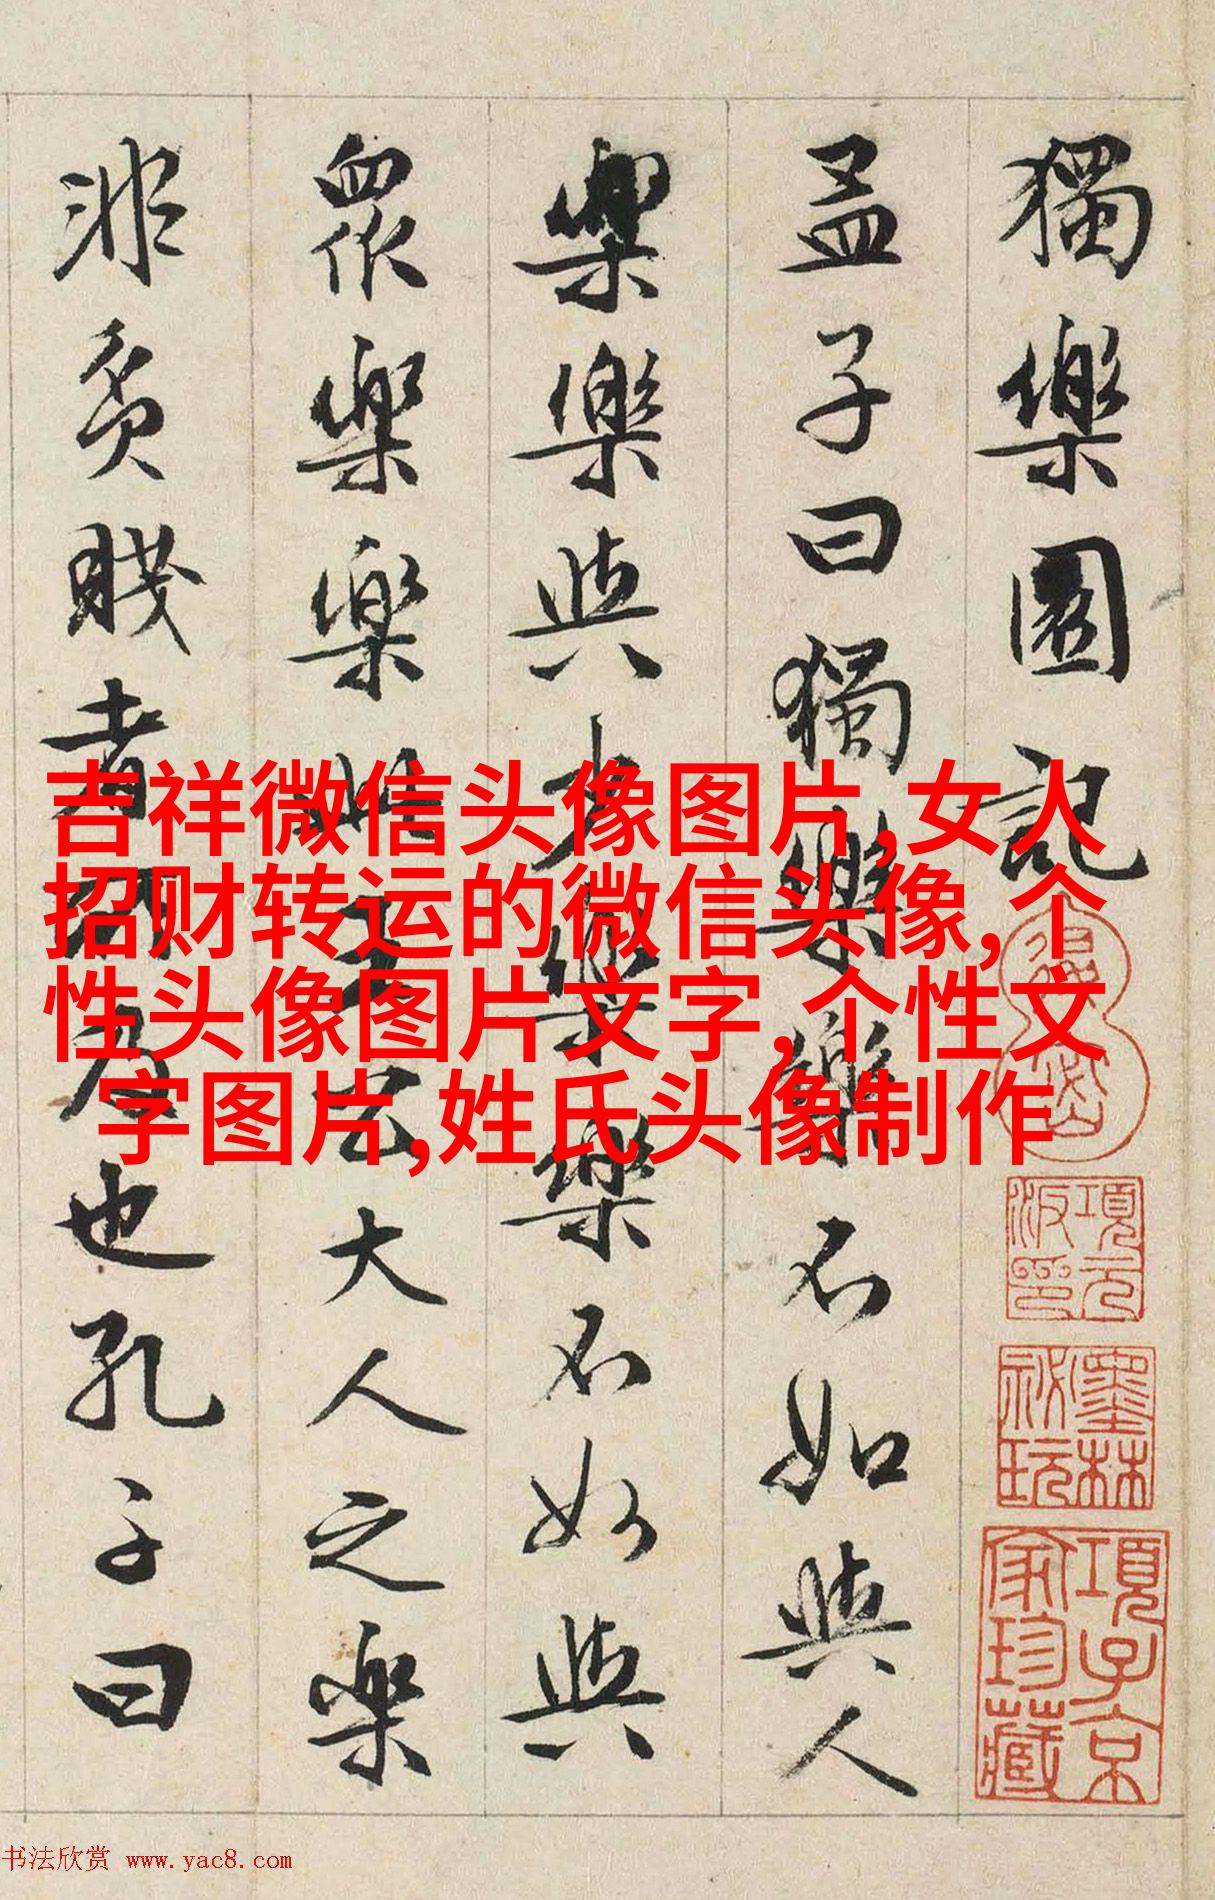 獨樂園記
孟子曰獨樂樂不如與人
樂樂與少樂樂不如與
眾樂樂此王公大人之樂
非貧賤者所及也孔子曰
吉祥微信头像图片,女人
招财转运的微信头像,个
性头像图片文字,个性文
字图片,姓氏头像制作
退密
項元汴印
墨林祕玩
項子京家珍藏
书法欣赏 www.yac8.com